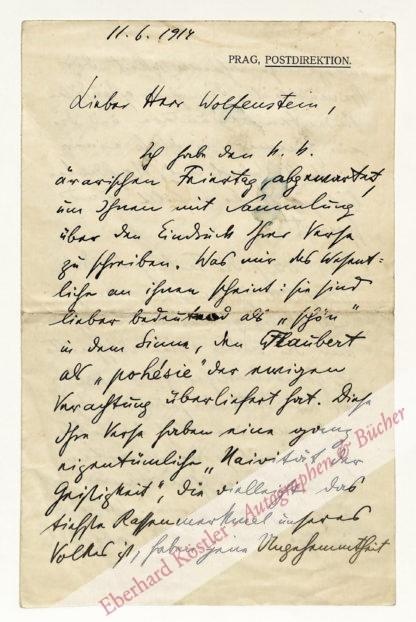 11. 6. 1914
PRAG, POSTDIREKTION.
Lieber Herr Wolfenstein,
Ich habe den k. k.
ärarischen Feiertag abgewartet,
um Ihnen mit Sammlung
über den Eindruck Ihrer Verse
zu schreiben. Was mir das Wesent-
liche an ihnen scheint: sie sind
lieber bedeutend als „schön"
in dem Sinne, den Flaubert
als „pohésie" der ewigen
Verachtung überliefert hat. Diese
Ihre Verse haben eine ganz
eigentümliche „Naivität der
Geistigkeit", die vielleicht das
tiefste Rassenmerkmal unseres
Volkes ist, haben jene Ungehemmtheit
Eberhard Köstler · Autographen & Bücher